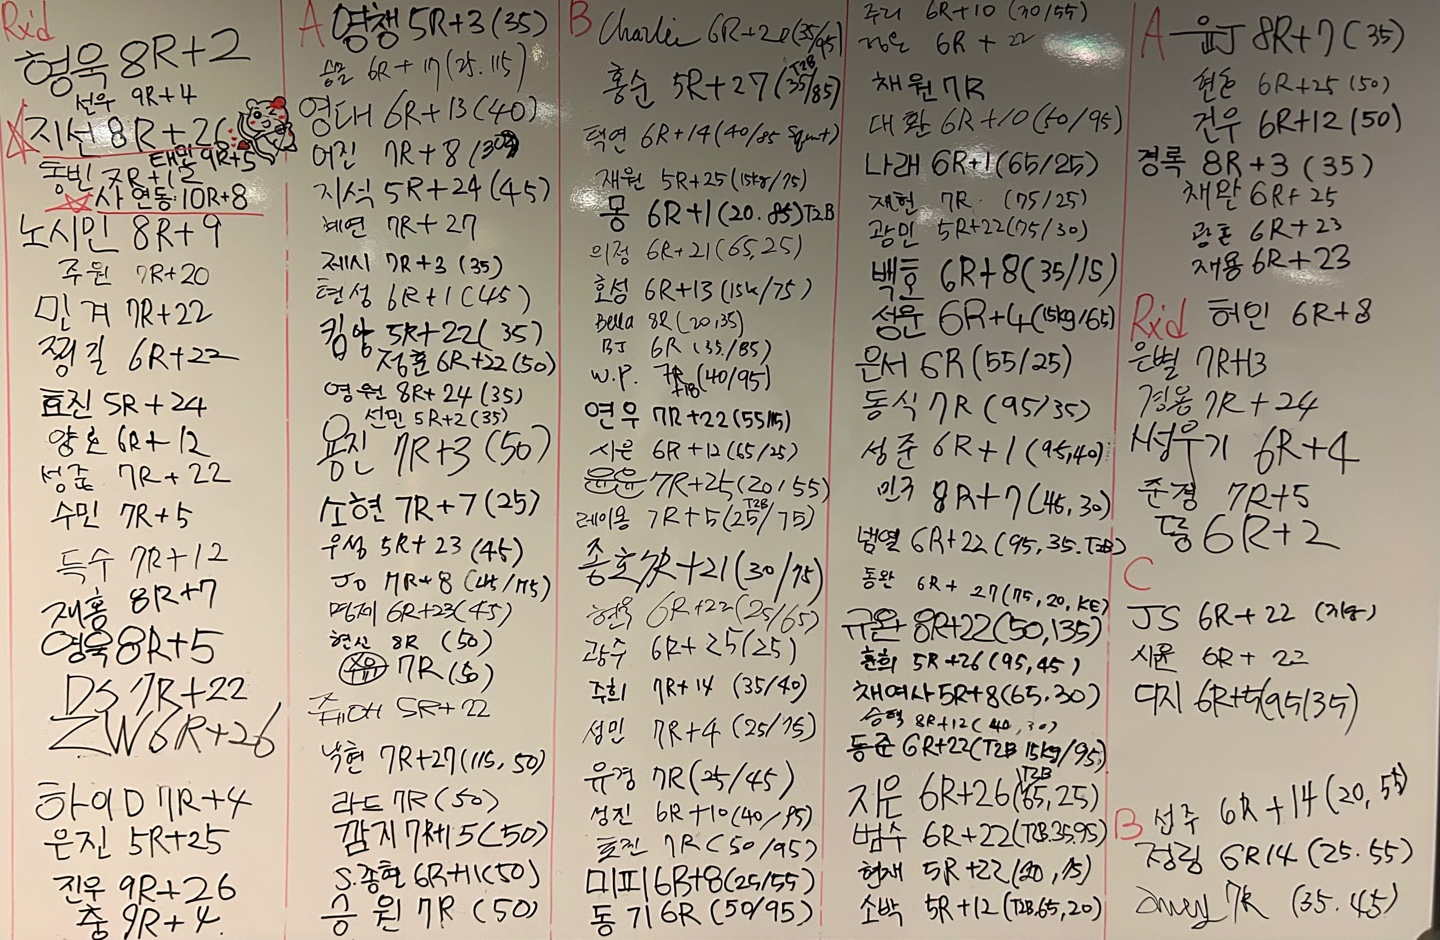 Rx'd
형욱 8R+2
선우 9R+4
지선 8R+26
태민 9R+5
동빈 7R+12
사연동 10R+8
노시민 8R+9
주원 7R+20
민겨 7R+22
찡길 6R+22
효진 5R+24
양호 6R+12
성준 7R+22
수민 7R+5
득수 7R+12
재홍 8R+7
영욱 8R+5
DS 7R+22
ZW 6R+26
하이D 7R+4
은진 5R+25
진우 9R+26
춤 9R+4
A
영챙 5R+3 (35)
6R+17 (25.115)
영대 6R+13 (40)
어진 7R+8
지석 5R+24 (45)
혜연 7R+27
제시 7R+3 (35)
현성 6R+1 (45)
킴양 5R+22 (35)
정훈 6R+22 (50)
영원 8R+24 (35)
선민 5R+2 (35)
용진 7R+3 (50)
소현 7R+7 (25)
우성 5R+23 (45)
JO 7R+8 (45/75)
명제 6R+23 (45)
현신 8R (50)
7R (50)
쥬니어 5R+22
낙현 7R+27 (115, 50)
라드 7R (50)
감지 7R+15 (50)
S.종현 6R+11 (50)
승원 7R (50)
B
Charlie 6R+20 (35/95)
홍순 5R+27 (T2B 35/85)
택연 6R+14 (40/85 Squat)
재원 5R+25 (15kg/75)
몽 6R+1 (20.85) T2B
의정 6R+21 (65,25)
호성 6R+13 (15k/75)
Bella 8R (20,35)
BJ 6R (35/85)
W.P. 7R (40/95)
연우 7R+22 (55/15)
시은 6R+12 (65/25)
윤윤 7R+25 (20/55)
레이몽 7R+5 (T2B 25/75)
종호 7R+21 (30/75)
현욱 6R+22 (25/65)
광수 6R+25 (25)
주희 7R+14 (35/40)
성민 7R+4 (25/75)
유경 7R (25/45)
성진 6R+10 (40/95)
효진 7R (50/95)
미피 6R+8 (25/55)
동기 6R (50/95)
주리 6R+10 (30/55)
6R+22
채원 7R
대환 6R+10 (50/95)
나래 6R+1 (65/25)
재헌 7R (75/25)
광민 5R+22 (75/30)
백호 6R+8 (35/15)
성운 6R+4 (15kg/65)
은서 6R (55/25)
동식 7R (95/35)
성준 6R+1 (95,40)
민국 8R+7 (45,30)
범열 6R+22 (95.35.T2B)
동완 6R+27 (75,20,KE)
규완 8R+22 (50,135)
환희 5R+26 (95,45)
채여사 5R+8 (65.30)
승택 8R+12 (40,30)
동준 6R+22 (T2B 15kg/95)
지은 6R+26 (T2B 65,25)
범수 6R+22 (T2B.35.95)
현재 5R+22 (20,75)
소박 5R+12 (T2B,65,20)
A
윤J 8R+7 (35)
현돈 6R+25 (50)
건우 6R+12 (50)
경록 8R+3 (35)
채완 6R+25
광호 6R+23
재용 6R+23
Rx'd
허인 6R+8
은별 7R+13
경용 7R+24
6R+4
준경 7R+5
똥 6R+2
C
JS 6R+22
시윤 6R+22
디지 6R+5 (95/35)
B
선주 6R+14 (20,55)
정링 6R14 (25.55)
7R (35.45)